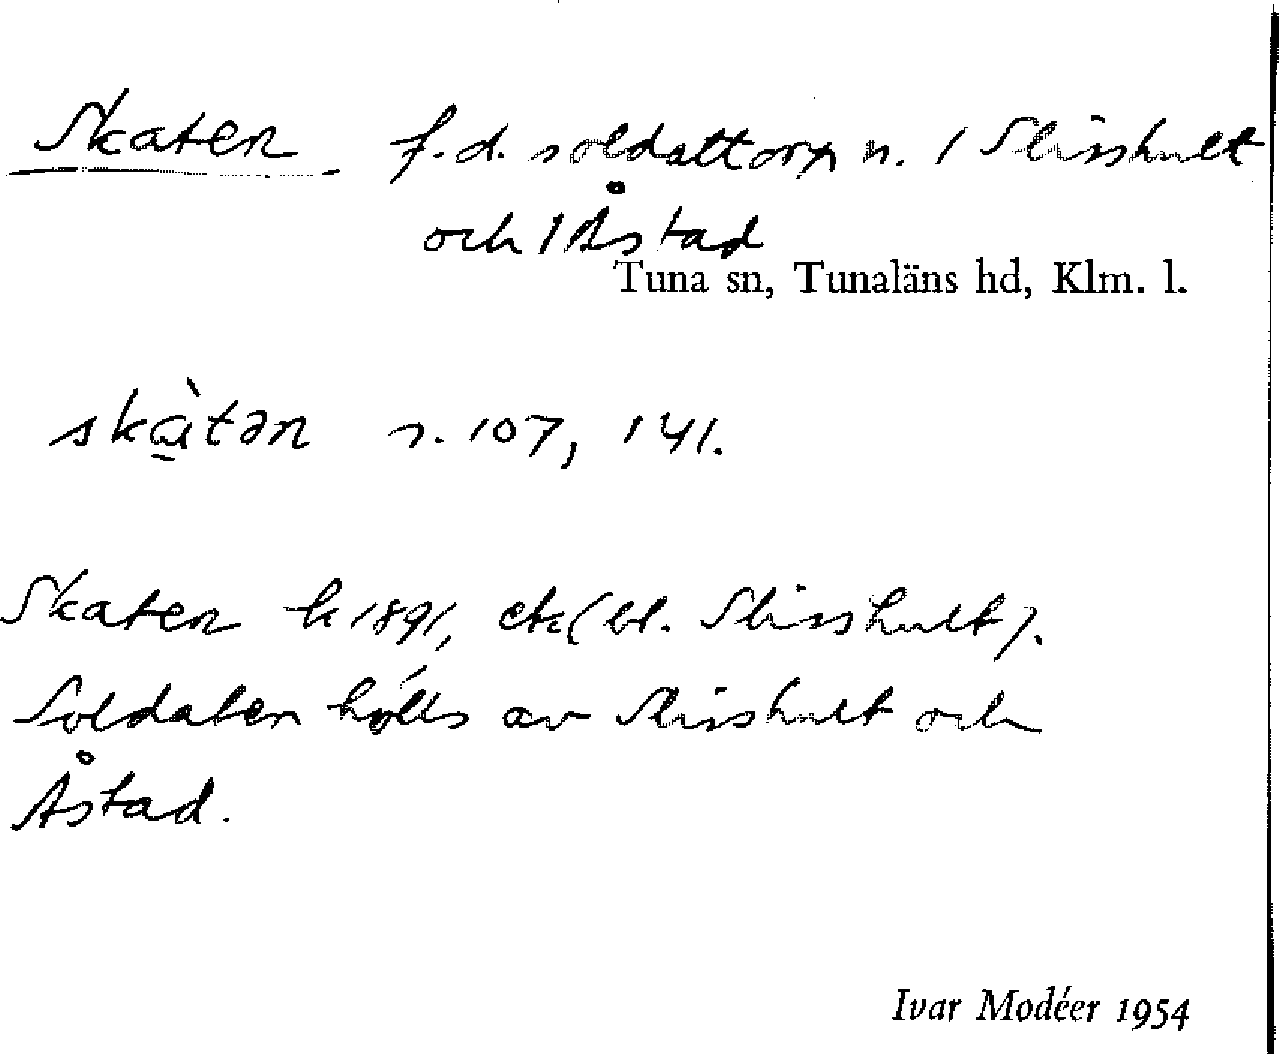 Skaten f.d. soldattorp n. 1 Slisshult
och 1 Åstad
Tuna sn, Tunaläns hd, Klm. l.
skɑ̀tən s. 107, 141.
Skaten k 1891, etk (bl. Slisshult).
Soldaten hölls av Slisshult och
Åstad.
Ivar Modéer 1954